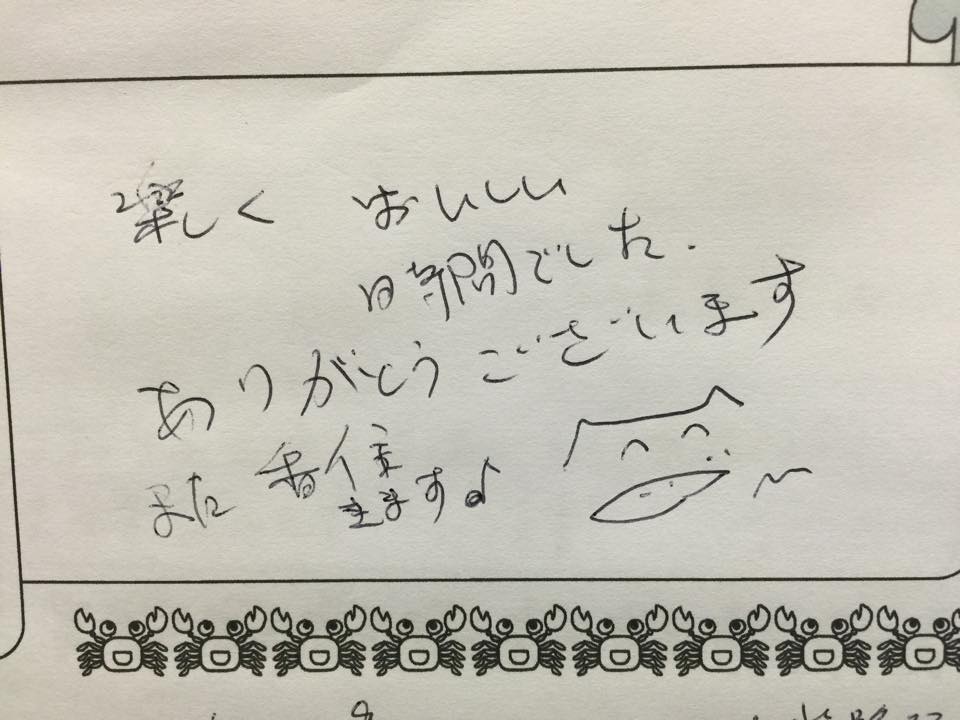 楽しく おいしい
時間でした.
ありがとうございます
また 香住
きます♪